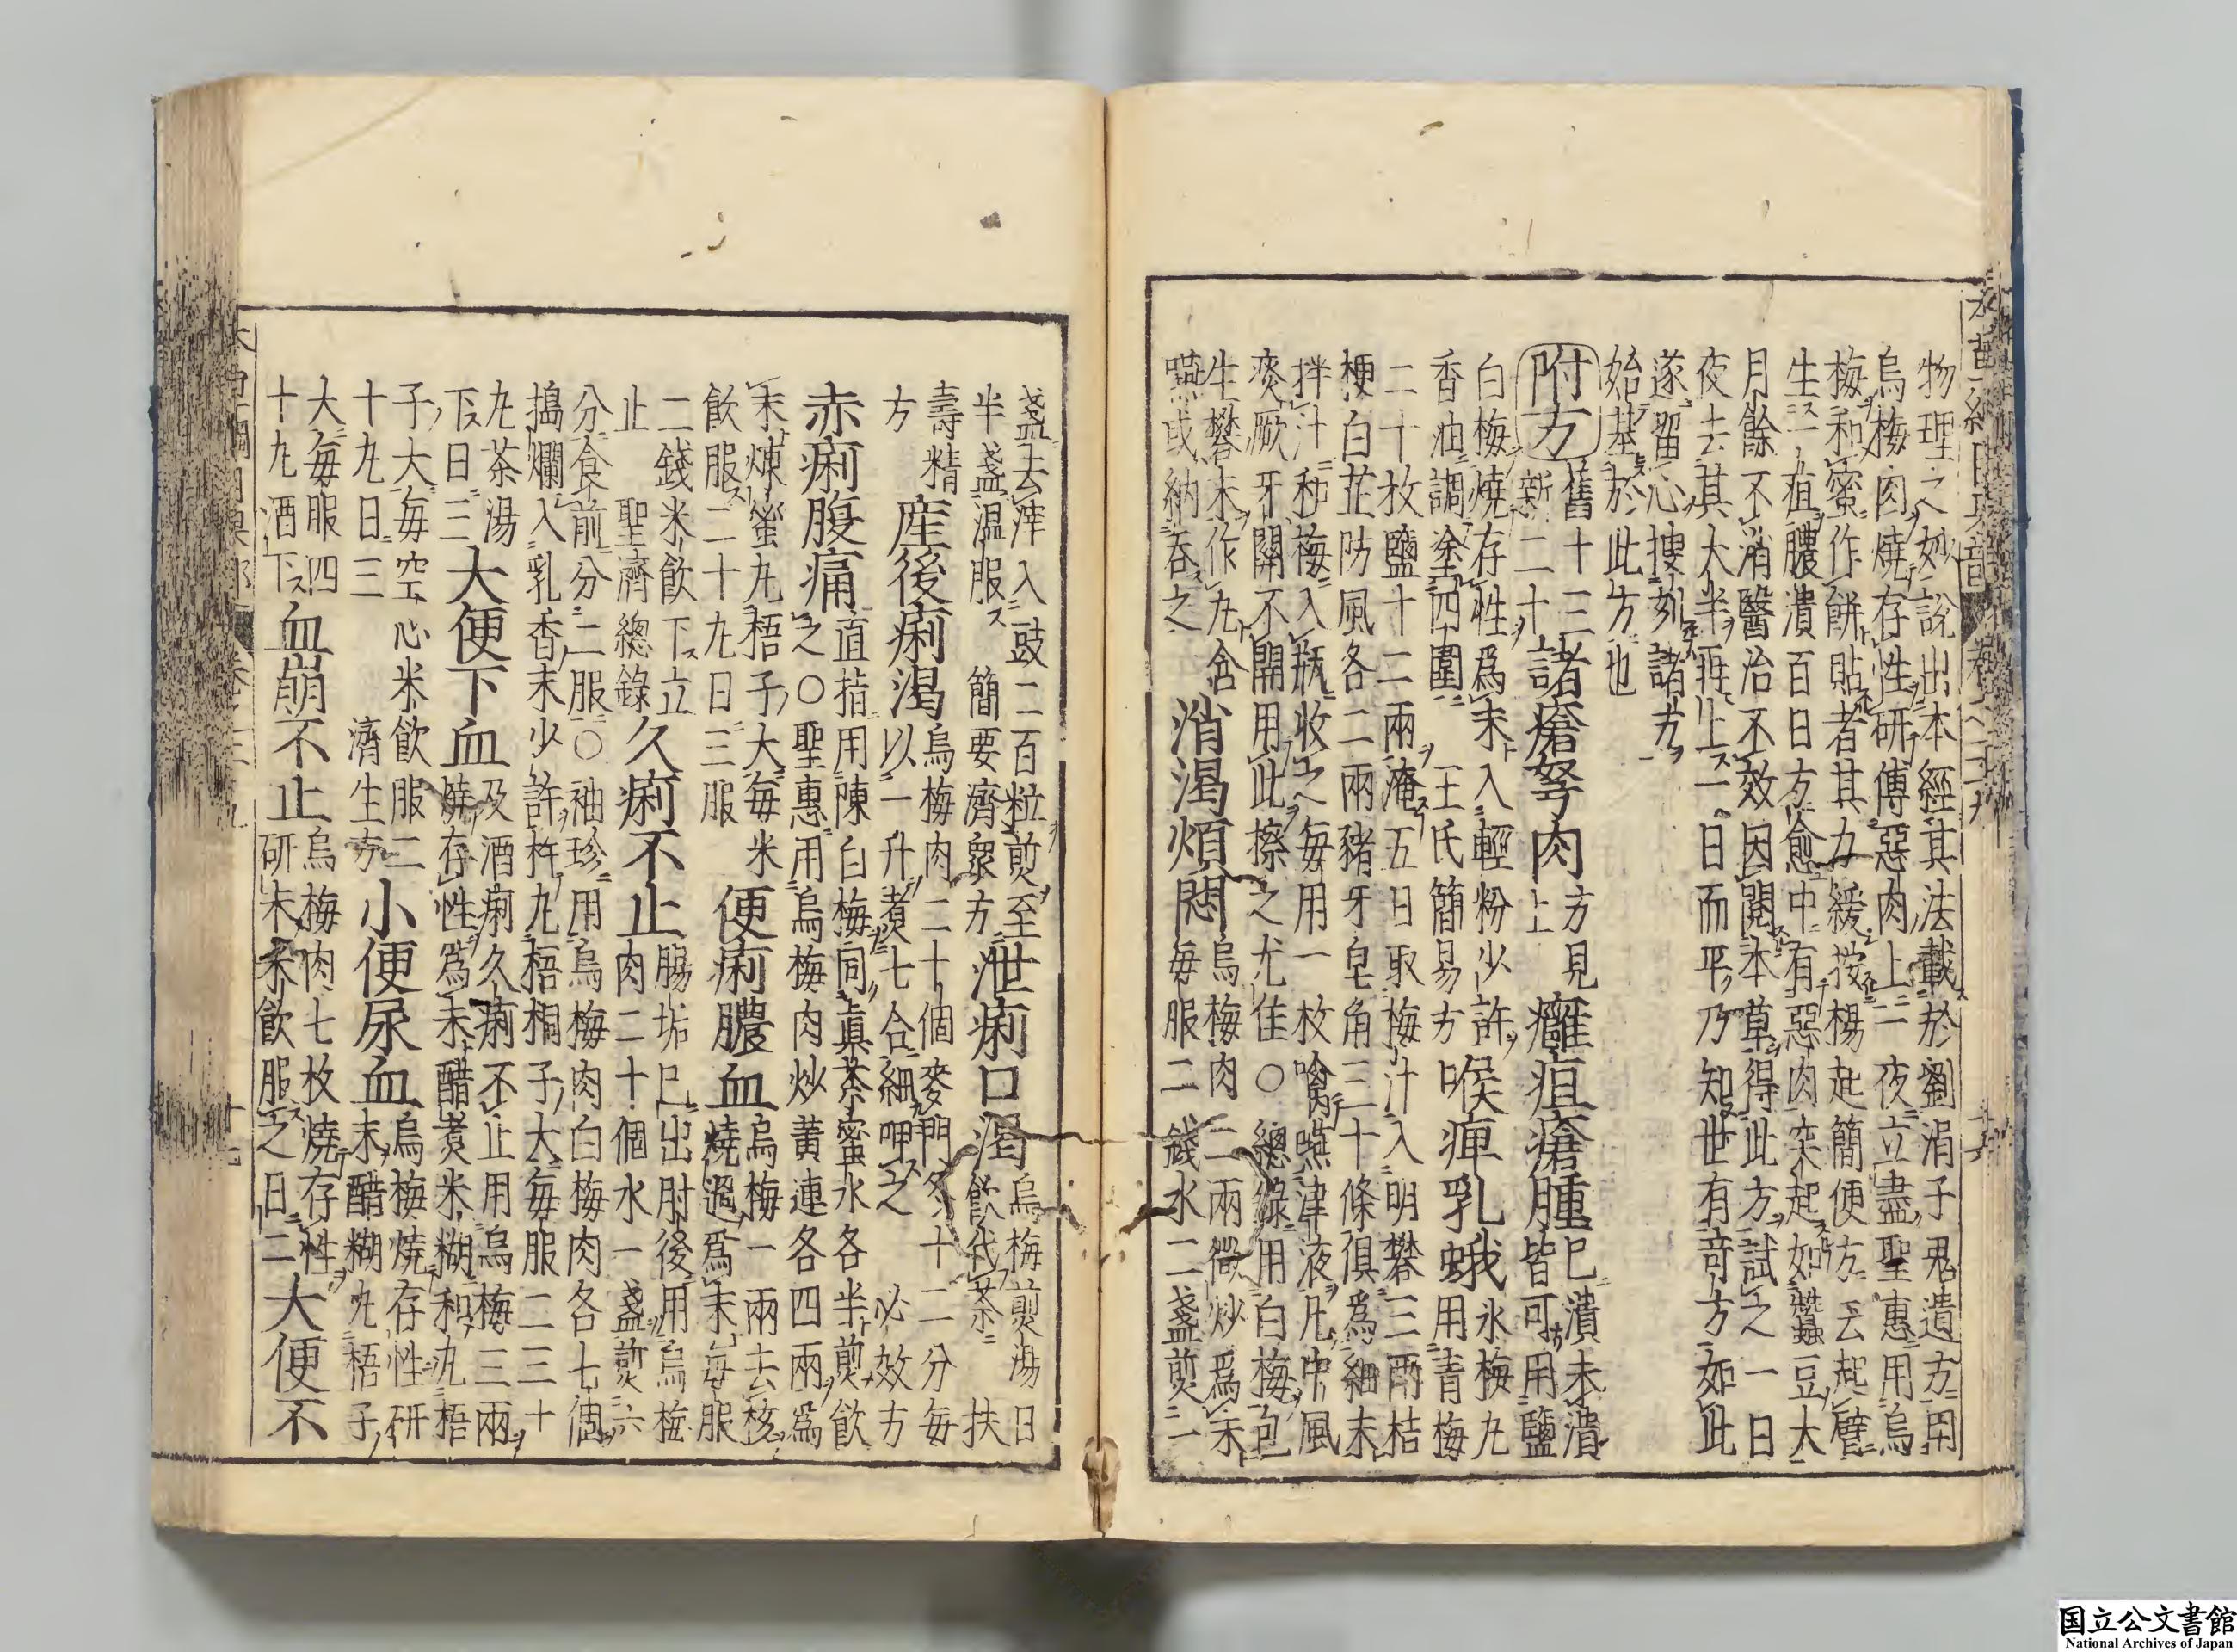 物理之妙說出本經其法載於劉涓子鬼遺方用
烏梅肉燒存性研傅惡肉上一夜立盡聖惠用烏
梅和蜜作餅貼者其力緩按楊起簡便方云起臂
生一疽膿潰百日方愈中有惡肉突起如蠶豆大
月餘不消醫治不效因閱本草得此方試之一日
夜去其大半再上一日而平乃知世有奇方如此
遂留心搜刻諸方
始基於此方也
附方
舊十三
新二十
諸瘡弩肉
方見
上
癰疽瘡腫
已潰未潰
皆可用鹽
白梅燒存性爲末入輕粉少許
香油調塗四圍 王氏簡易方
喉痺乳蛾
氷梅丸
用青梅
二十枚鹽十二兩淹五日取梅汁入明礬三兩桔
梗白芷防風各二兩豬牙皂角三十條俱爲細末
拌汁和梅入瓶收之每用一枚噙嚥津液凡中風
痰厥牙關不開用此擦之尤佳〇總錄用白梅包
生礬末作丸含
嚥或納吞之
消渴煩悶
烏梅肉二兩微炒爲末
每服二錢水二盞煎二
盞去滓入豉二百粒煎至
半盞溫服 簡要濟衆方
泄痢口渴
烏梅煎湯日
飲代茶 扶
壽精
方
産後痢渴
烏梅肉二十個麥門冬十二分每
以一升煮七合細呷之 必效方
赤痢腹痛
直指用陳白梅同眞茶蜜水各半煎飲
之〇聖惠用烏梅肉炒黃連各四兩爲
末煉蜜丸梧子大每米
飲服二十丸日三服
便痢膿血
烏梅一兩去核
燒過爲末每服
二錢米飲下立
止 聖濟總錄
久痢不止
腸垢已出肘後用烏梅
肉二十個水一盞煎六
分食前分二服〇袖珍用烏梅肉白梅肉各七個
搗爛入乳香末少許杵丸梧桐子大每服二三十
丸茶湯
下日三
大便下血
及酒痢久痢不止用烏梅三兩
燒存性爲末醋煮米糊和丸梧
子大每空心米飲服二
十丸日三 濟生方
小便尿血
烏梅燒存性研
末醋糊丸梧子
大每服四
十丸酒下
血崩不止
烏梅肉七枚燒存性
研末米飲服之日二
大便不
国立公文書館
National Archives of Japan